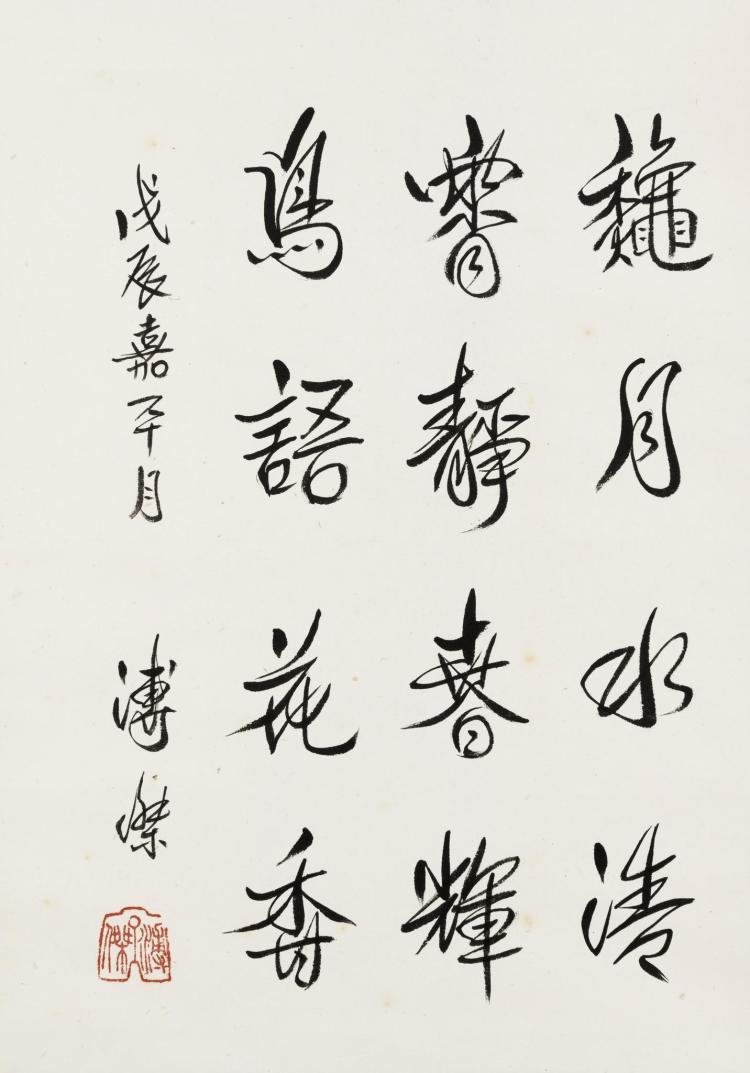 龝月水清
霄靜春輝
鳥語花香
戊辰嘉平月 溥傑
溥傑